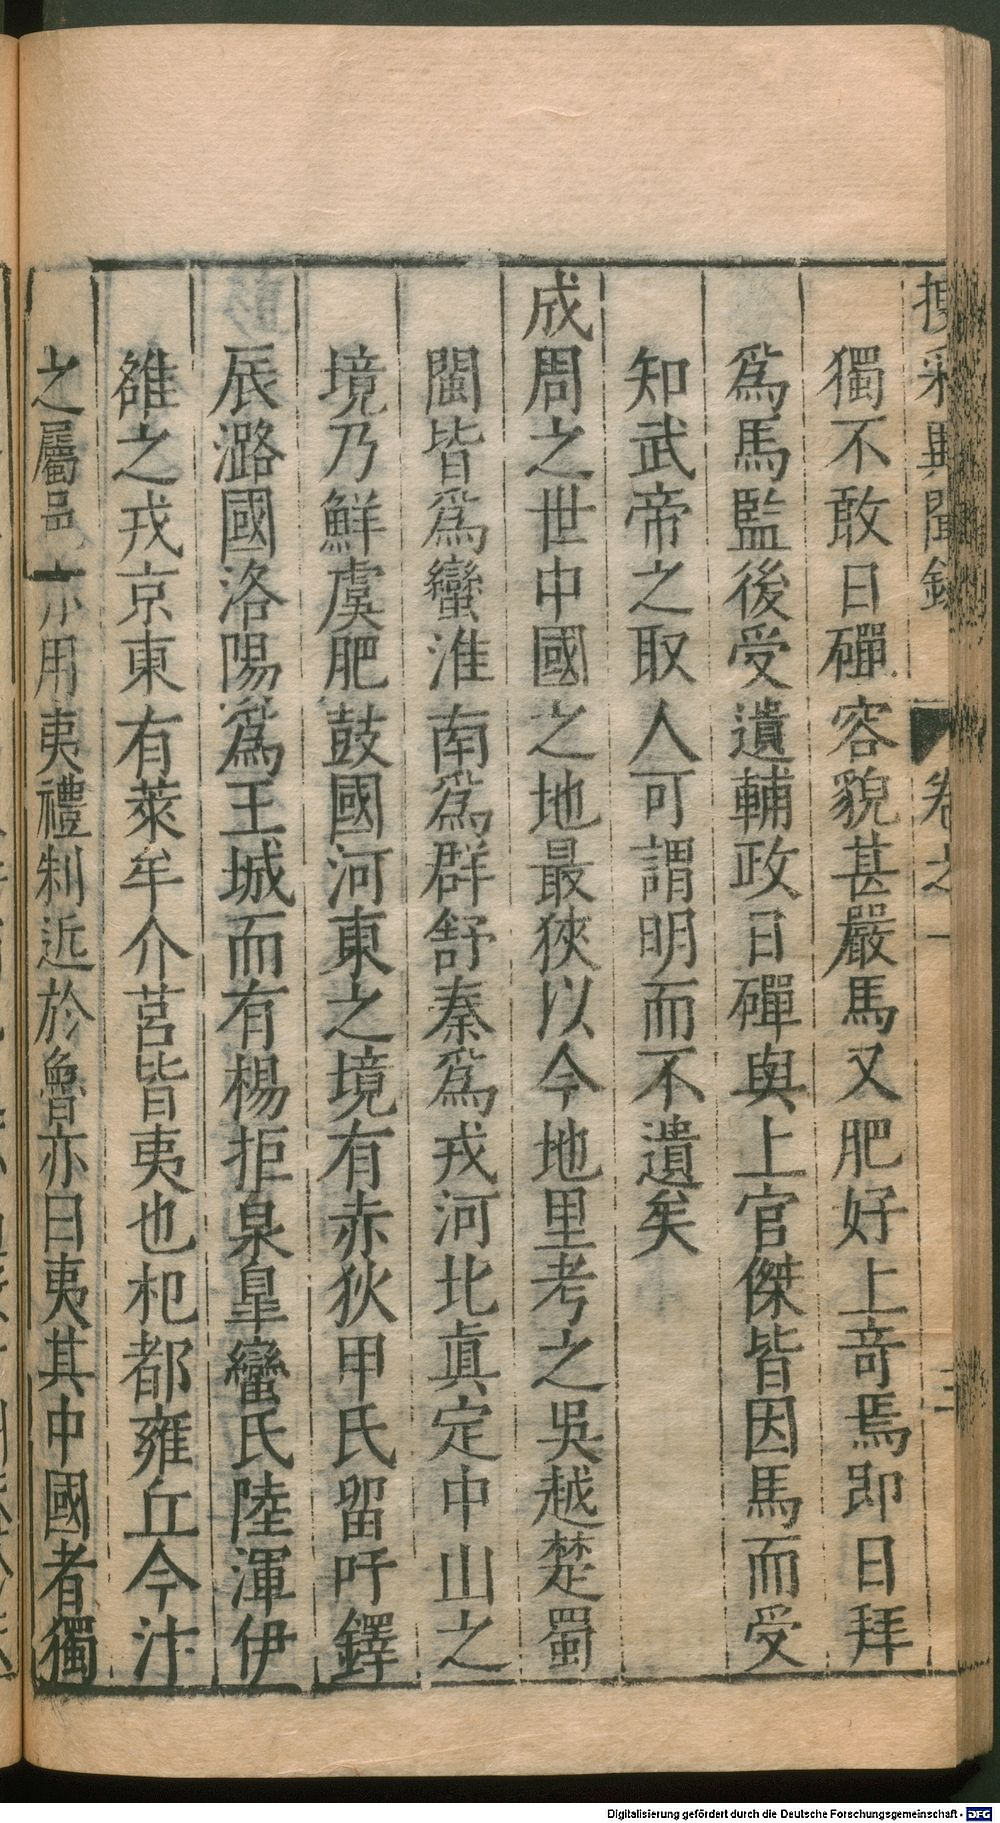 採異聞錄 卷之一 三
獨不敢日磾容貌甚嚴馬又肥好上奇焉即日拜
爲馬監後受遺輔政日磾與上官傑皆因馬而受
知武帝之取人可謂明而不遺矣
成周之世中國之地最狹以今地里考之吳越楚蜀
閩皆爲蠻淮南爲群舒秦爲戎河北眞定中山之
境乃鮮虞肥鼓國河東之境有赤狄甲氏留吁鐸
辰潞國洛陽爲王城而有楊拒泉臯蠻氏陸渾伊
雒之戎京東有萊牟介莒皆夷也杞都雍丘今汴
之屬邑亦用夷禮制近於魯亦曰夷其中國者獨
Digitalisierung gefördert durch die Deutsche Forschungsgemeinschaft - DFG